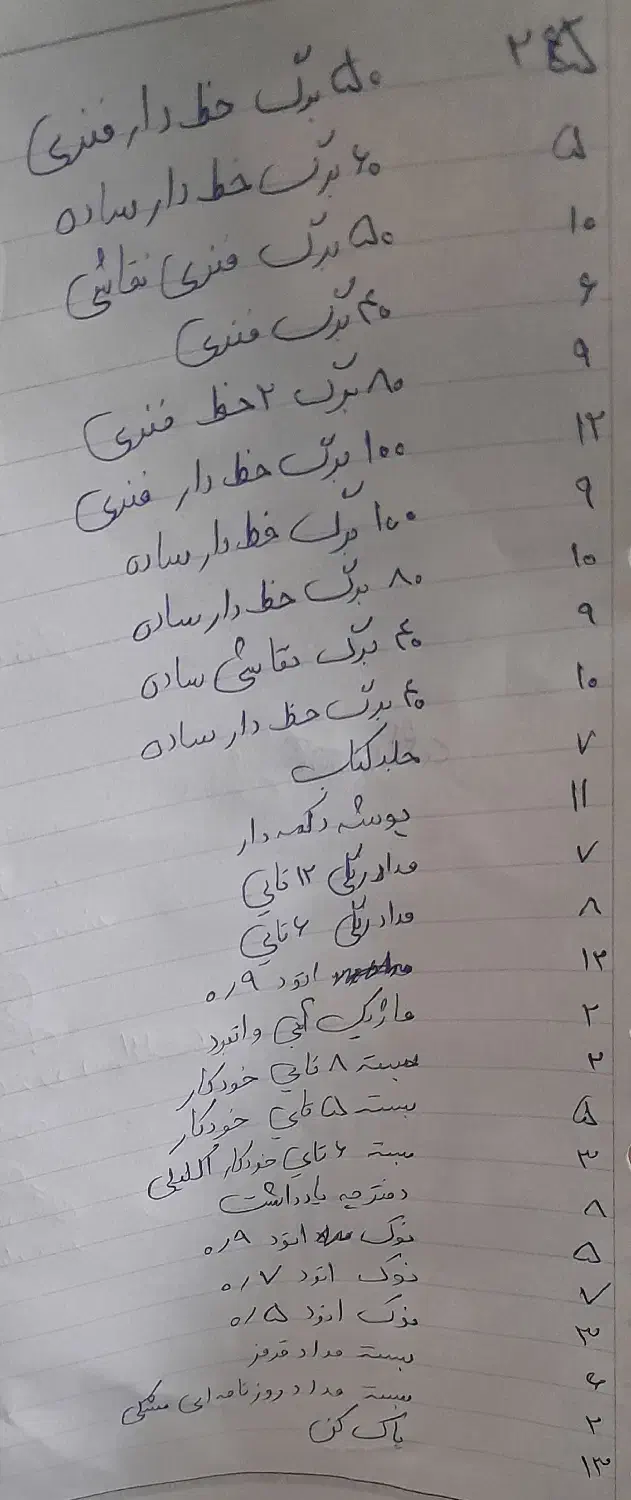 ۵۰ برگ خط دار فنری
۵ ۶۰ برگ خط دار ساده
۱۰ ۵۰ برگ فنری نقاشی
۶ ۴۰ برگ فنری
۹ ۸۰ برگ ۲خط فنری
۱۲ ۱۰۰ برگ خط دار فنری
۹ ۱۰۰ برگ خط دار ساده
۱۰ ۸۰ برگ خط دار ساده
۹ ۴۰ برگ نقاشی ساده
۱۰ ۴۰ برگ خط دار ساده
۷ جلد کتاب
۱۱ پوشه دکمه دار
۷ مداد رنگی ۱۲ تایی
۸ مداد رنگی ۶ تایی
۱۲ اتود ۰٫۹
۲ ماژیک آبی واتبرد
۲ بسته ۸ تایی خودکار
۵ بسته ۵ تایی خودکار
۳ بسته ۶ تایی خودکار اکلیلی
۸ دفترچه یادداشت
۵ نوک اتود ۰٫۹
۷ نوک اتود ۰٫۷
۳ نوک اتود ۰٫۵
۶ بسته مداد قرمز
۲ بسته مداد روزنامه ای مشکی
۱۳ پاک کن